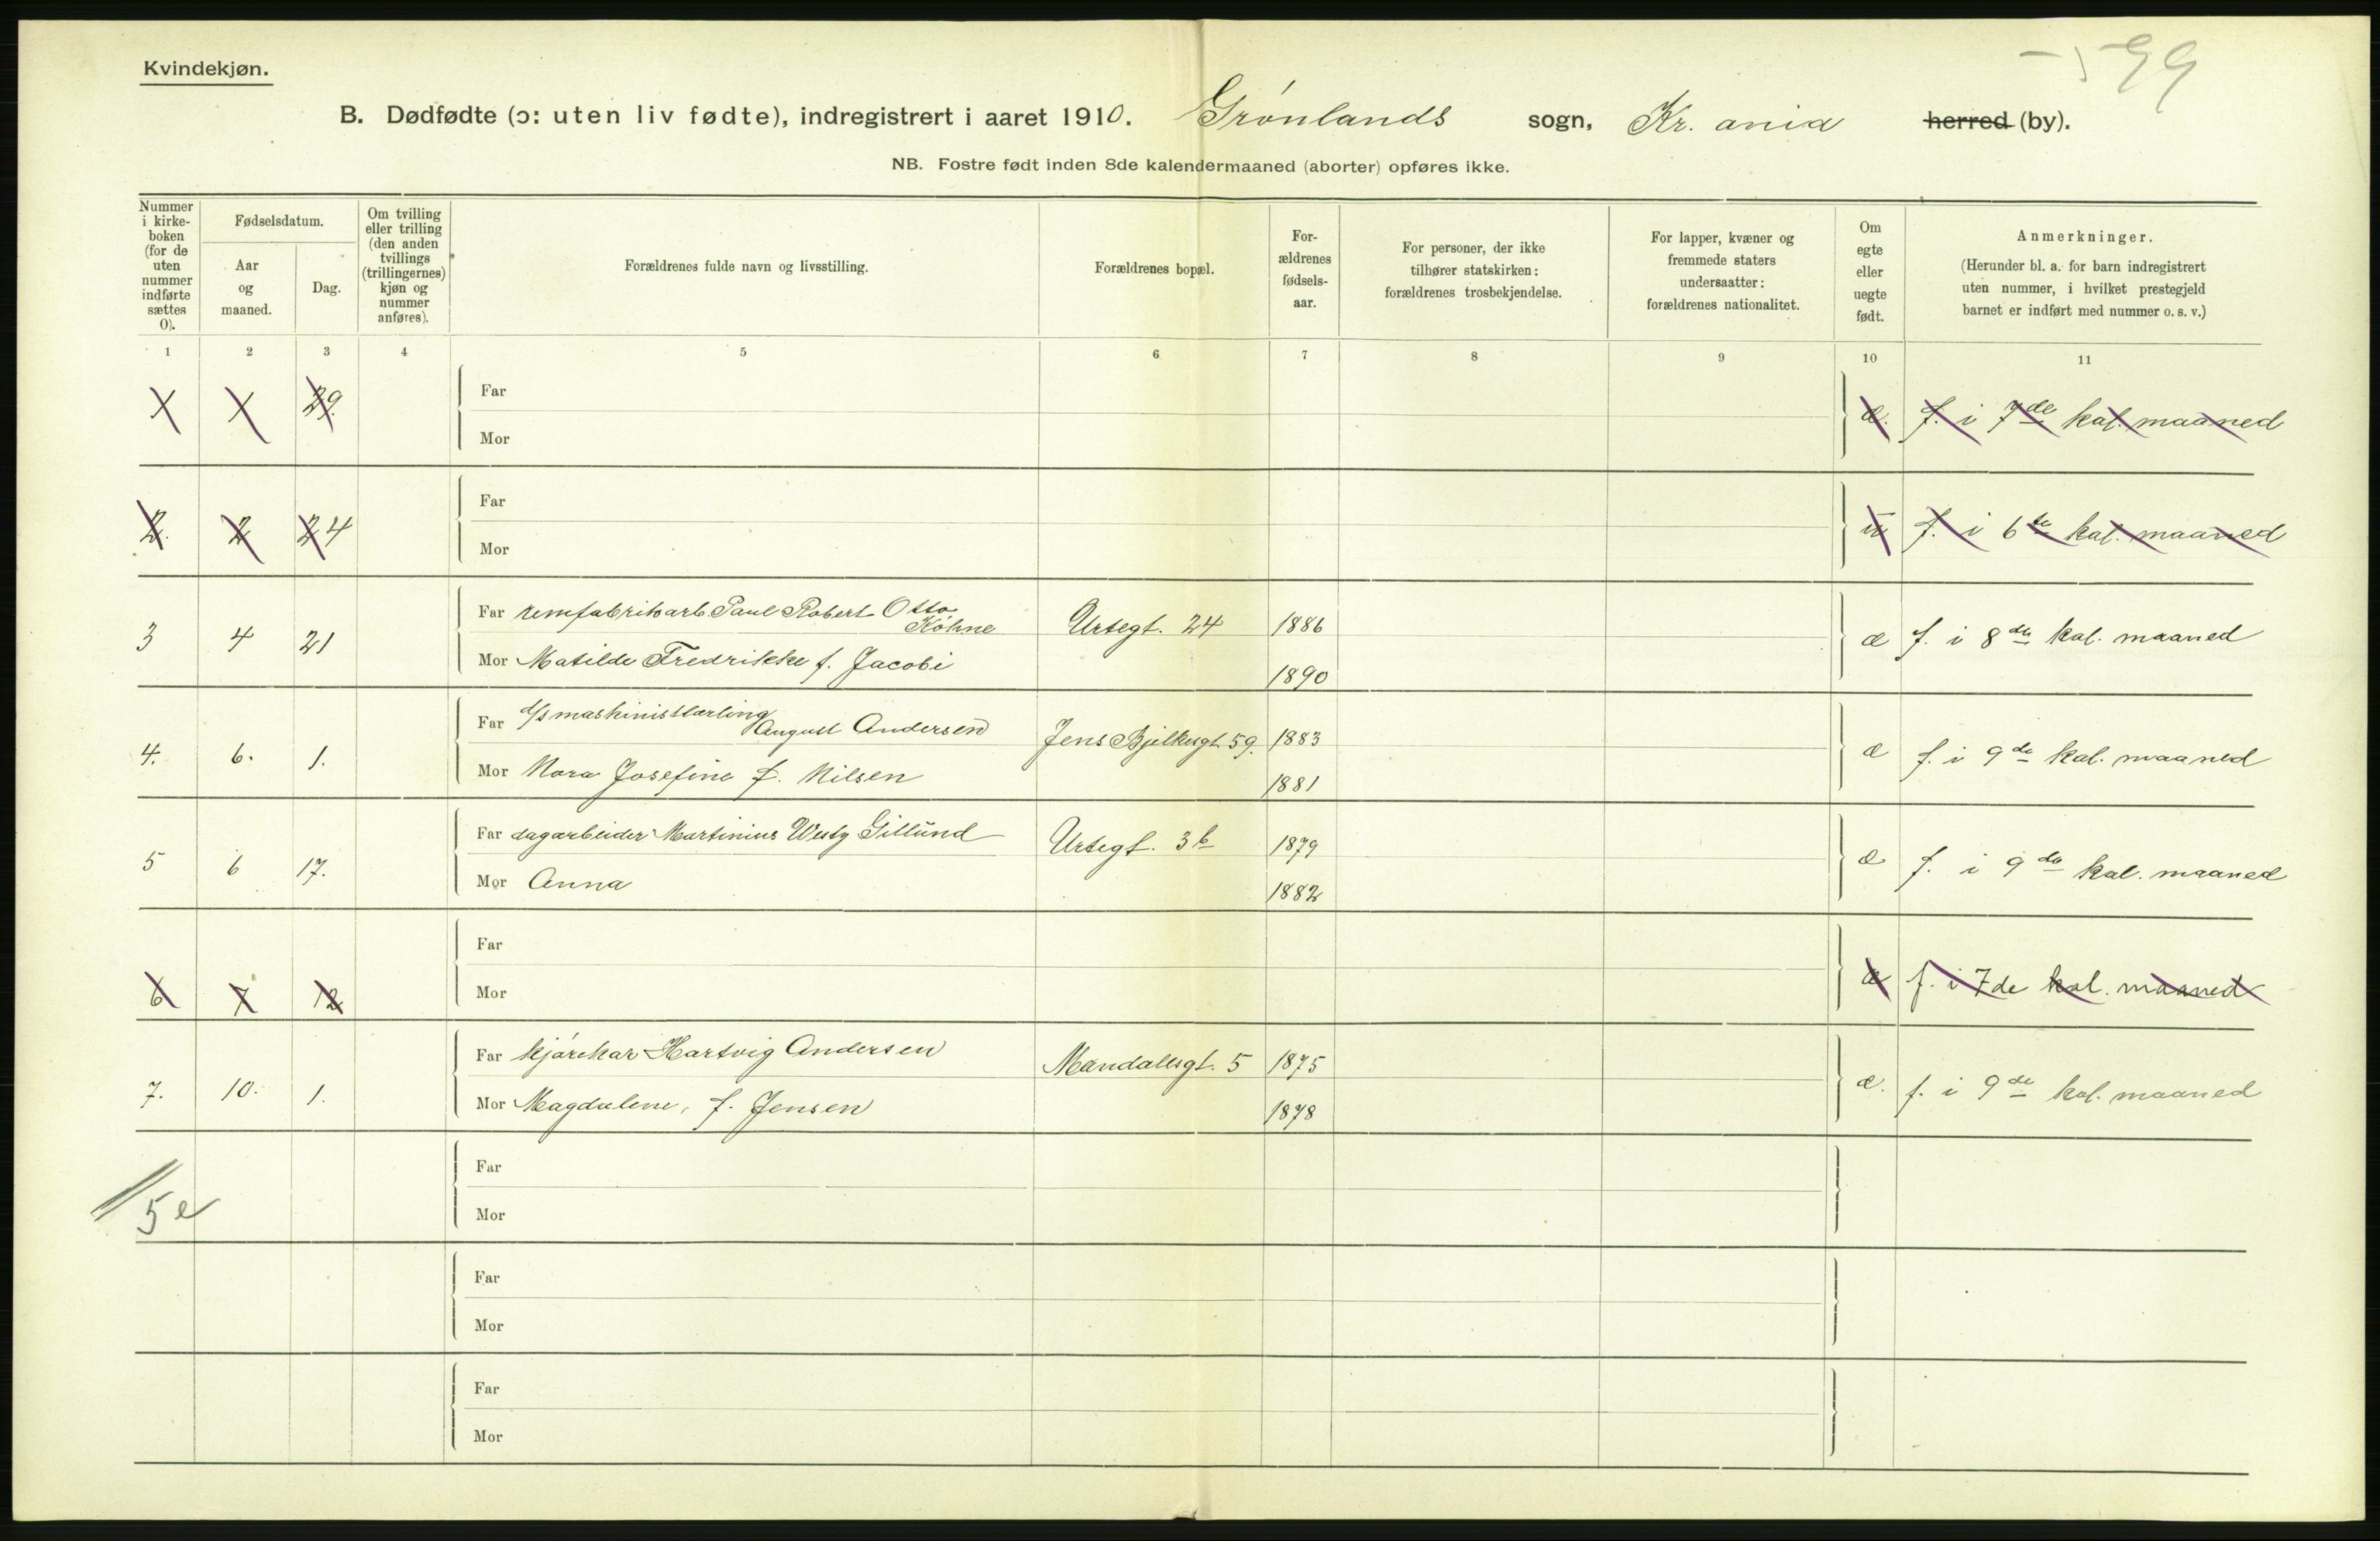 Kvindekjøn.
99
B. Dødfødte (ɔ: uten liv fødte), indregistrert i aaret 1910. Grønlands sogn, Kr. ania herred (by).
NB. Fostre født inden 8de kalendermaaned (aborter) opføres ikke.
Nummer i kirke-boken (for de uten nummer indførte sættes 0).
Fødselsdatum.
Aar og maaned.
Dag.
Om tvilling eller trilling (den anden tvillings (trillingernes) kjøn og nummer anføres).
Forældrenes fulde navn og livsstilling.
Forældrenes bopæl.
For-ældrenes fødsels-aar.
For personer, der ikke tilhører statskirken: forældrenes trosbekjendelse.
For lapper, kvæner og fremmede staters undersaatter: forældrenes nationalitet.
Om egte eller uegte født.
Anmerkninger.
(Herunder bl. a. for barn indregistrert uten nummer, i hvilket prestegjeld barnet er indført med nummer o. s. v.)
1 2 3 4 5 6 7 8 9 10 11
1 1 29. Far æ. f. i 7de kal. maaned
Mor
2. 2 24 Far u f. i 6te kal. maaned
Mor
3 4 21 Far remfabrikarb. Paul Robert Otto Köhne Urtegt. 24 1886 æ f. i 8de kal. maaned
Mor Matilde Fredrikke f. Jacobi 1890
4. 6. 1. Far maskinistlærling August Andersen Jens Bjelkesgt. 59. 1883 æ f. i 9de kal. maaned
Mor Nora Josefine f. Nilsen 1881
5 6 17. Far dagarbeider Martinius Westy Gillund Urtegt. 3b 1879 æ f. i 9de kal. maaned
Mor Anna 1882
6 7 12 Far æ f. i 7de kal. maaned
Mor
7. 10. 1. Far kjørekar Hartvig Andersen Mandallsgt. 5 1875 æ. f. i 9de kal. maaned
Mor Magdalene, f. Jensen 1878
Far
5 e Mor
Far
Mor
Far
Mor